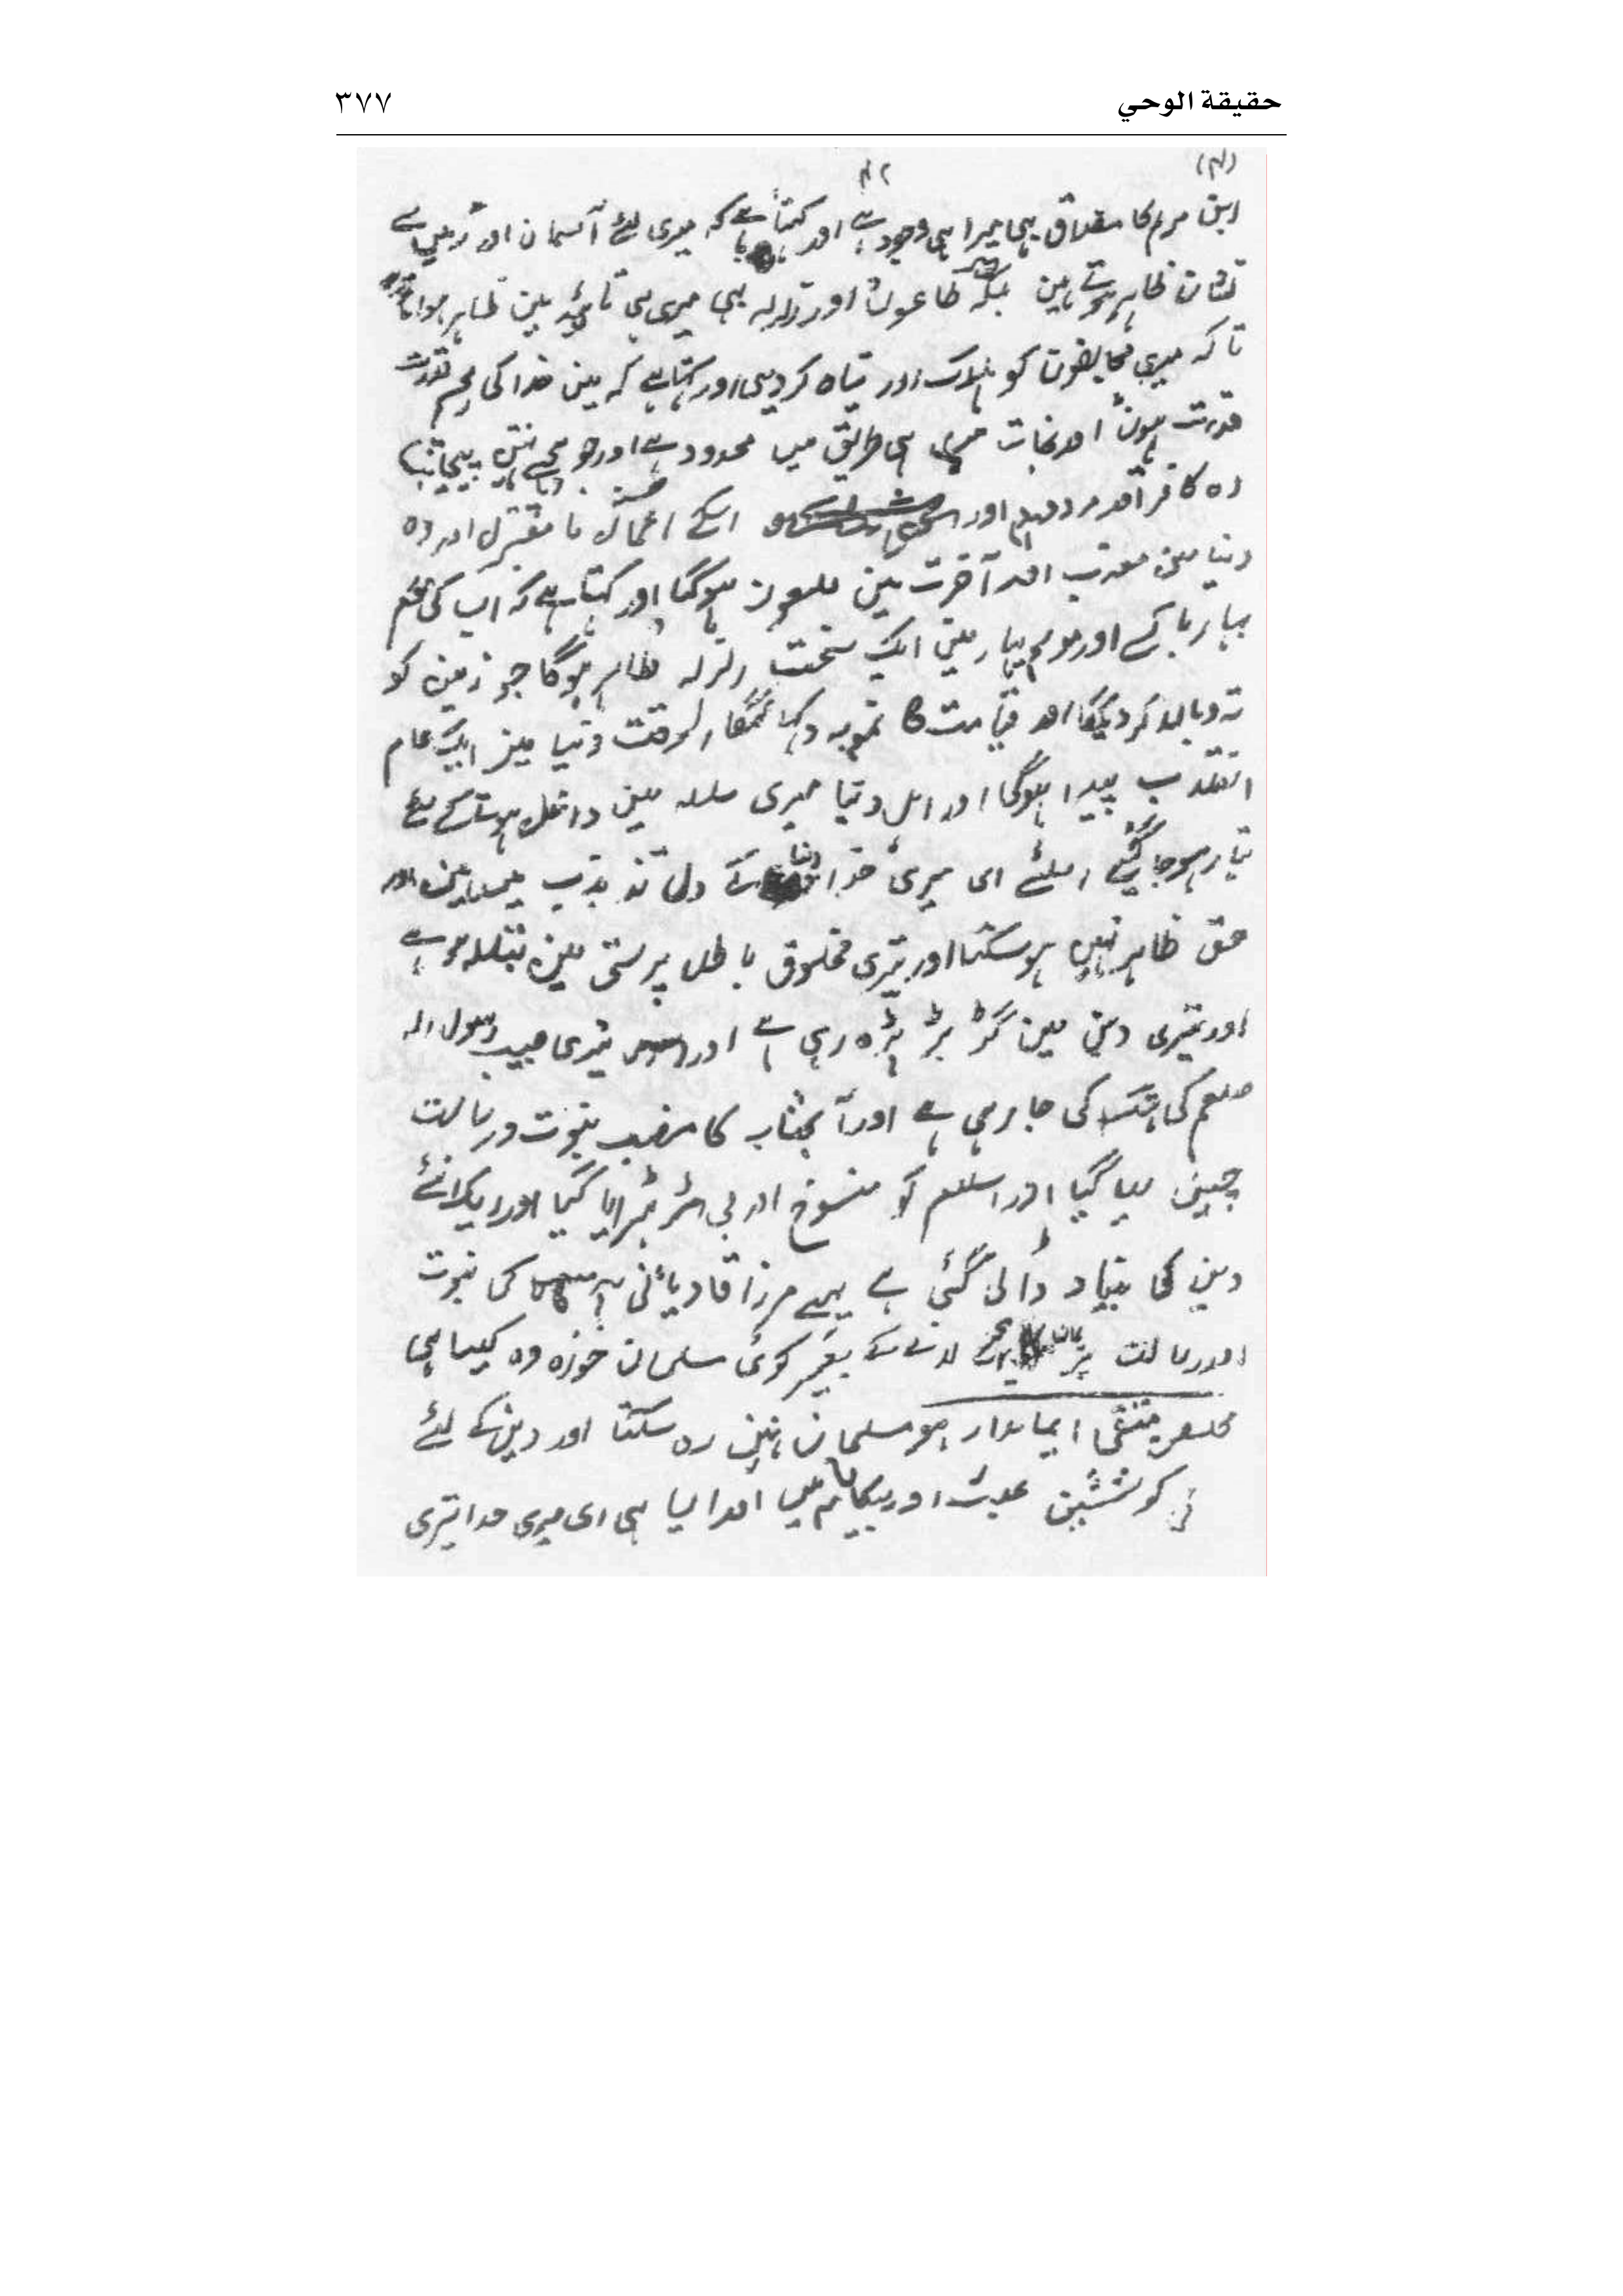 حقيقة الوحي ٣٧٧
(۴)
ابن مریم کا مصداق بھی میرا ہی وجود ہے اور کہتا ہے کہ میری لئے آسمان اور زمین سے
نشان ظاہر ہوتے ہین بلکہ طاعون اور زلزلہ بھی میری ہی تائید مین ظاہر ہوا
تا کہ میری مخالفون کو ہلاک اور تباہ کر دیں اور کہتا ہے کہ مین خدا کی مجسم قدرت
قدرت ہون اور نجات میری ہی طریق میں محدود ہے اور جو مجھے نہین پہچانتا
وہ کافر اور مردود ہے اور اسکے اعمال حسنہ نا مقبول اور وہ
دنیا مین معذب اور آخرت مین ملعون ہوگا اور کہتا ہے کہ اب کی
بہار یا کسے اور موسم بہار مین ایک سخت زلزلہ ظاہر ہوگا جو زمین کو
تہ و بالا کر دیگا اور قیامت کا نمونہ دکھا اوسوقت دنیا مین ایک عام
انقلاب پیدا ہوگا اور اہل دنیا میری سلسلہ مین داخل ہونے کے لئے
تیار ہو جائینگے اسلئے ای میری خدا دنیا کے دل تذبذب میں ہین اور
حق ظاہر نہین ہو سکتا اور تیری مخلوق باطل پرستی مین مبتلا ہو ہے
اور تیری دین مین گڑ بڑ پڑہ رہی ہے اور تیری حبیب رسول اللہ
صلعم کی ہتک کی جا رہی ہے اور آنجناب کا منصب نبوت و رسالت
چھین لیا گیا اور اسلام کو منسوخ اور بی اثر ٹہرایا گیا اور ایک نئے
دین کی بنیاد ڈالی گئی ہے یعنے مرزا قادیانی کی نبوت
اور رسالت پر ایمان لانے کے بغیر کوئی مسلمان خواہ وہ کیسا ہی
مخلص متقی ایماندار ہو مسلمان نہین رہ سکتا اور دین کے لئے
کوششین عبث اور بیکار ہیں اور ایسا ہی ای میری خدا تیری